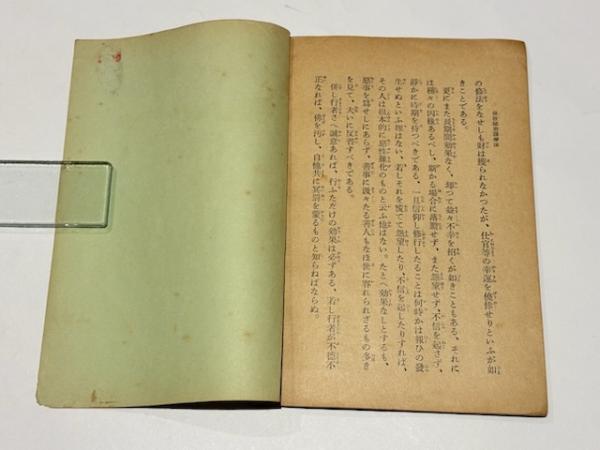 の修法をなせしも財は獲られなかつたが、仕官等の幸運を僥倖せりといふが如
きことである。
更にまた長期間効果なく、却つて益々不幸を招くが如きこともある。それに
は種々の因縁あるべし、斯かる場合に落膽せず、また怨望せず、不信を起さず、
靜かに時期を待つべきである。一旦信仰し修行したることは何時かは報ひの發
生せぬといふ理はない、若しそれを慌てて怨望したり、不信を起したりすれば、
その人は根本的に惡性難化のものと云ふ他はない。たとへ効果なしとするも、
惡事を爲せしにあらず、善事に汲々たる善人もなほ世に容れられざるもの多き
を見て、大いに反省すべきである。
併し行者さへ誠意あれば、行ふただけの効果は必ずある、若し行者が不德不
正なれば、佛を汚し、自他共に冥罰を蒙るものと知らねばならぬ。